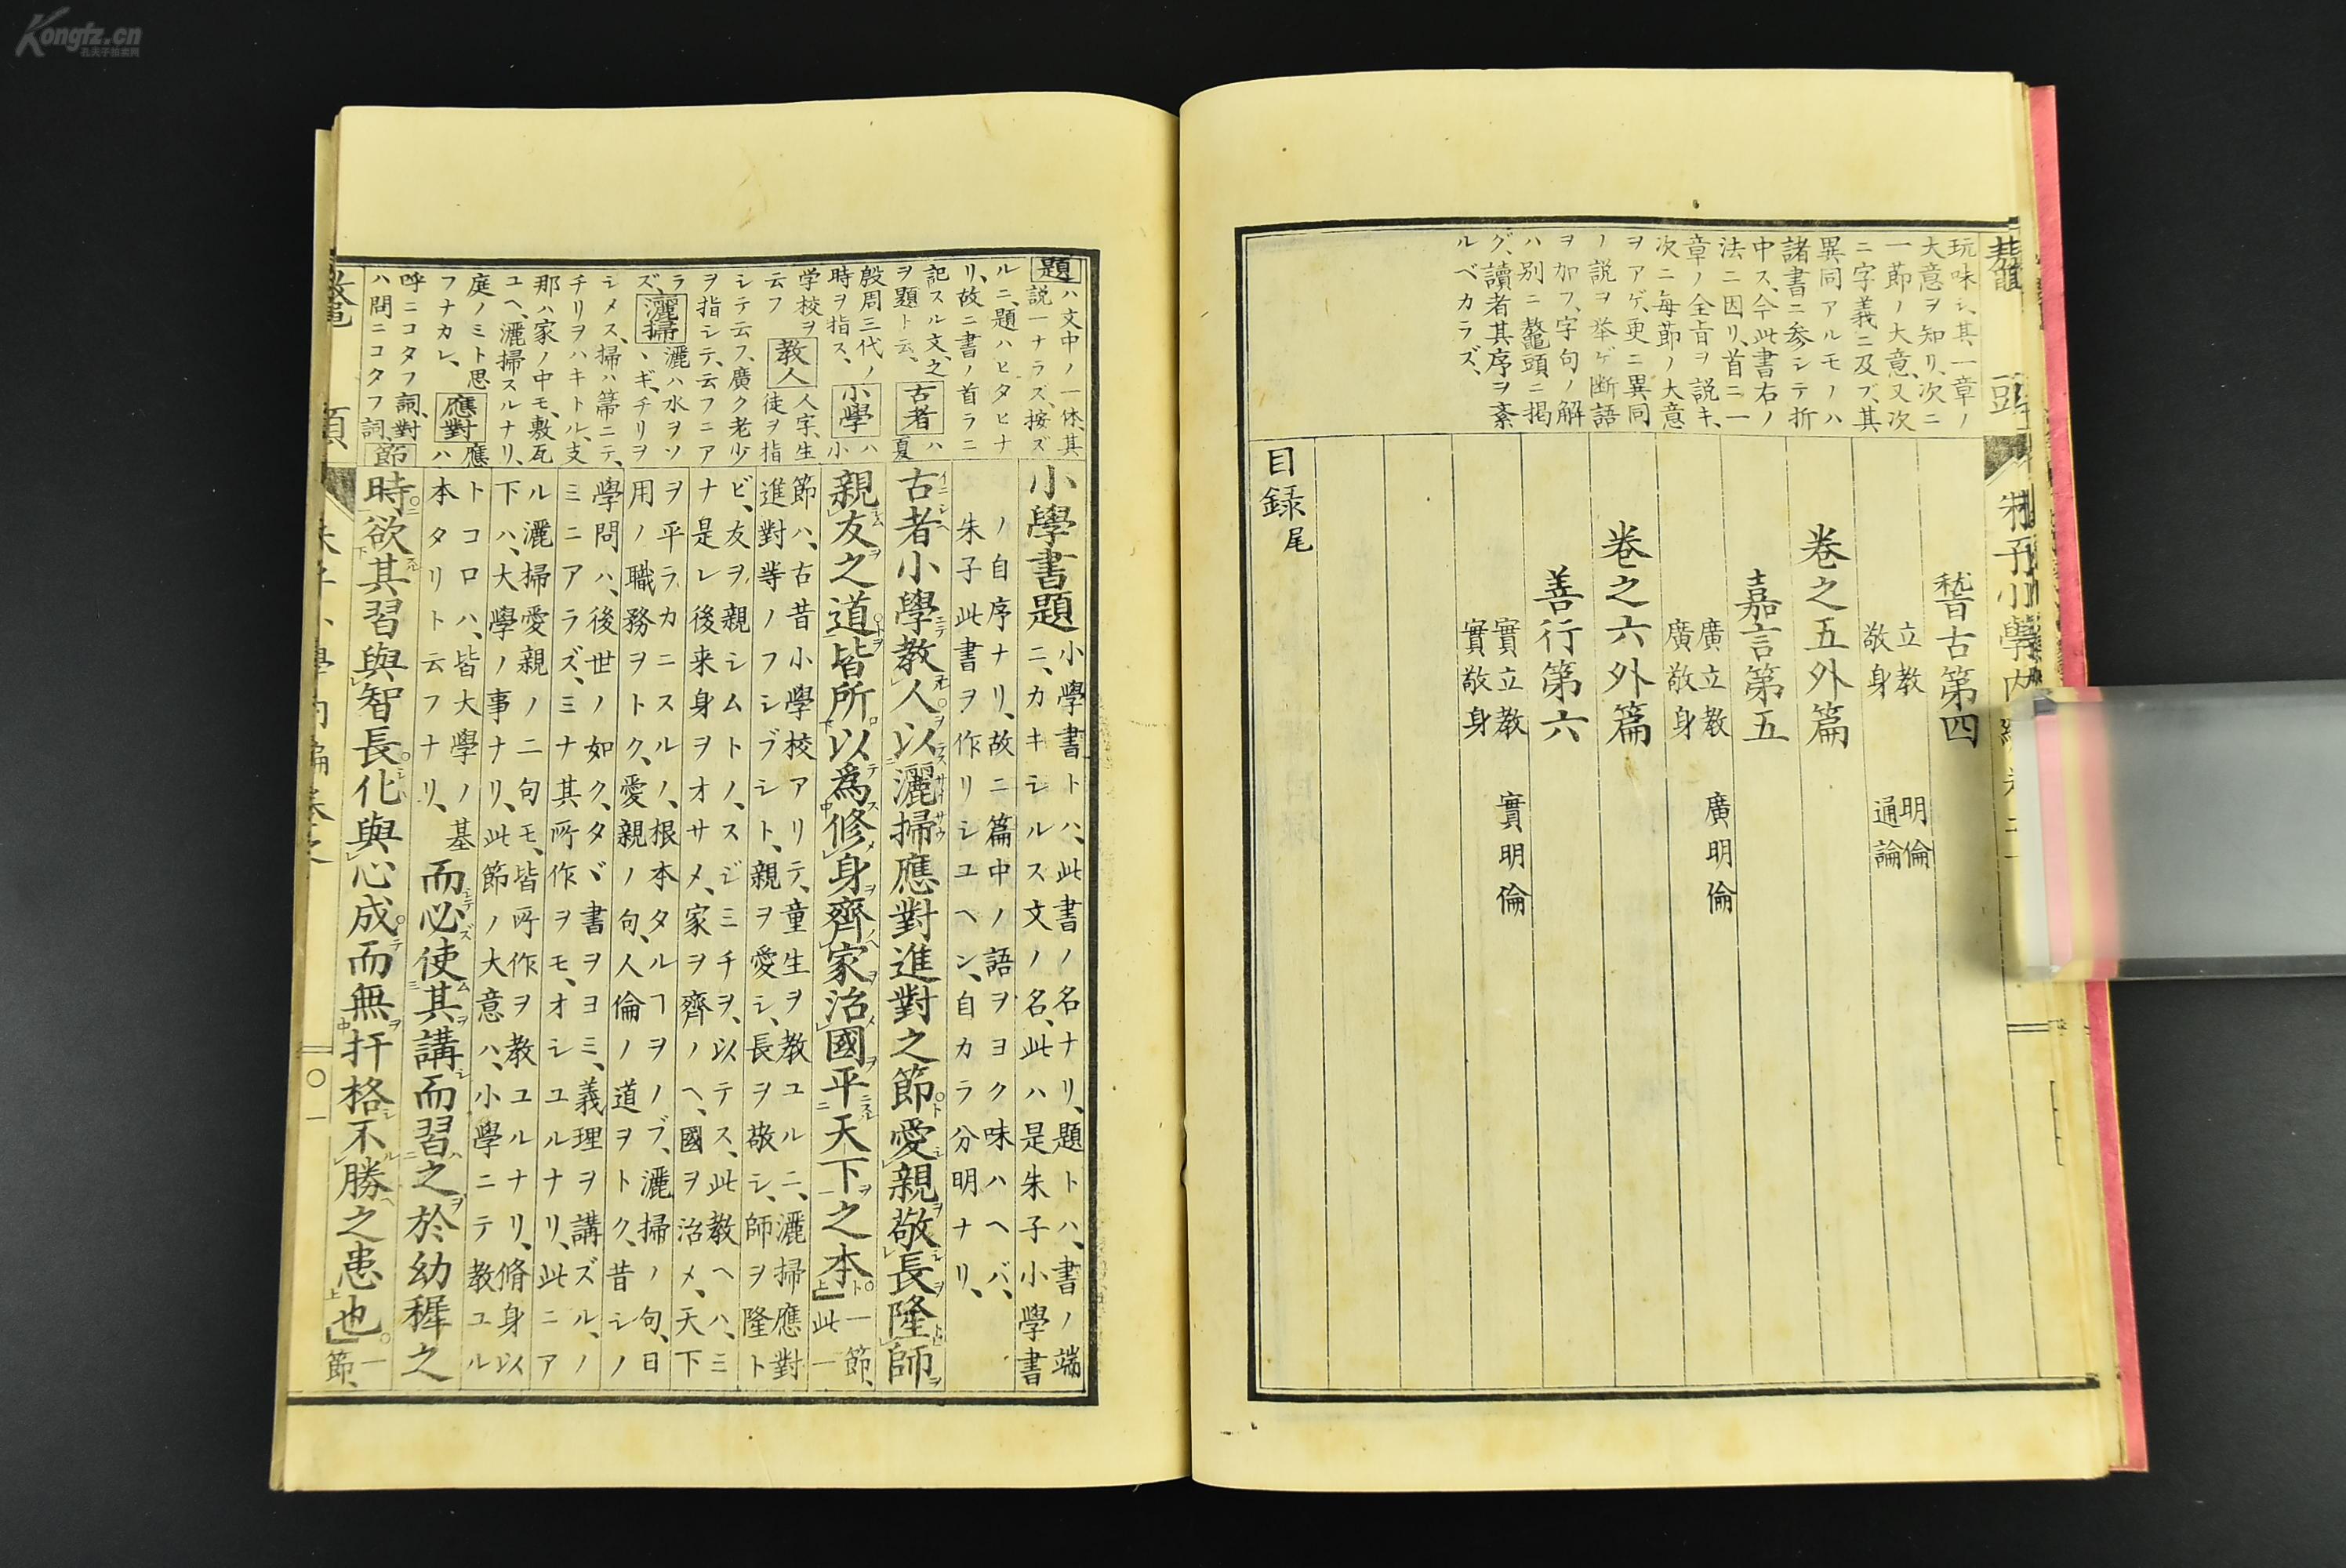 Kongfz.cn
孔夫子拍卖网
玩味シ、其一章ノ
大意ヲ知リ、次ニ
一節ノ大意、又次
ニ字義ニ及ブ、其
異同アルモノハ
諸書ニ参シテ折
中ス、今此書右ノ
法ニ因リ、首ニ一
章ノ全旨ヲ説キ、
次ニ毎節ノ大意
ヲアゲ、更ニ異同
ノ説ヲ挙ゲ断語
ヲ加フ、字句ノ解
ハ別ニ鼇頭ニ掲
グ、讀者其序ヲ紊
ルベカラズ、
稽古第四
立教 明倫
敬身 通論
卷之五外篇
嘉言第五
廣立教 廣明倫
廣敬身
卷之六外篇
善行第六
實立教 實明倫
實敬身
目録尾
題ハ文中ノ一体、其
説一ナラズ、按ズ
ルニ、題ハヒタヒナ
リ、故ニ書ノ首ラニ
記スル文、之
ヲ題ト云、古者ハ夏
殷周三代ノ
時ヲ指ス、小學ハ小
学校ヲ
云フ 教人 人字、生徒ヲ指
シテ云フ、廣ク老少
ヲ指シテ、云フニア
ラ
ズ、灑掃 灑ハ水ヲソ
ヽギ、チリヲ
シメス、掃ハ箒ニテ、
チリヲハキトル、支
那ハ家ノ中モ、敷瓦
ユヘ、灑掃スルナリ、
庭ノミト思
フナカレ、應對 應ハ
呼ニコタフ詞、對
ハ問ニコタフ詞、節
小學書題 小學書トハ、此書ノ名ナリ、題トハ、書ノ端
ニ、カキシルス文ノ名、此ハ是朱子小學書
ノ自序ナリ、故ニ篇中ノ語ヲヨク味ハヘバ、
朱子此書ヲ作リシユヘン、自カラ分明ナリ、
古者小學教人以灑掃應對進對之節愛親敬長隆師
親友之道皆所以爲修身齊家治國平天下之本 此一節、
節ハ、古昔小學校アリテ、童生ヲ教ユルニ、灑掃應對
進對等ノフシブシト、親ヲ愛シ、長ヲ敬シ、師ヲ隆ト
ビ、友ヲ親シムトノ、スジミチヲ、以テス、此教ヘハ、三
ナ是レ後来身ヲオサメ、家ヲ齊ノヘ、國ヲ治メ、天下
ヲ平ラカニスルノ、根本タルヿヲノブ、灑掃ノ句、日
用ノ職務ヲトク、愛親ノ句、人倫ノ道ヲトク、昔シノ
學問ハ、後世ノ如ク、タヾ書ヲヨミ、義理ヲ講ズル、ノ
ミニアラズ、ミナ其所作ヲモ、オシユルナリ、此ニア
ル灑掃愛親ノ二句モ、皆所作ヲ教ユルナリ、脩身以
下ハ、大學ノ事ナリ、此節ノ大意ハ、小學ニテ教ユル
トコロハ、皆大學ノ基
本タリト云フナリ、而必使其講而習之於幼穉之
時欲其習與智長化與心成而無扞格不勝之患也 一節、